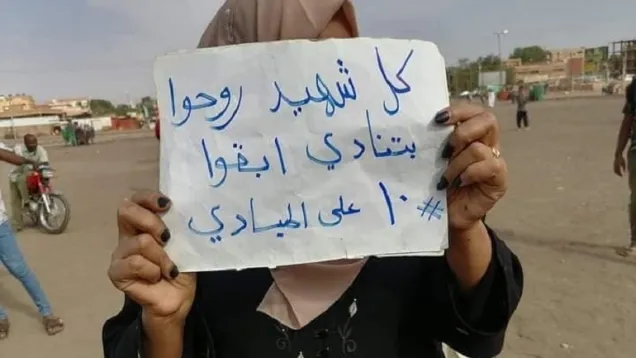 كل شهيد روحوا
بتنادي ابقوا
#١٠ على المبادي